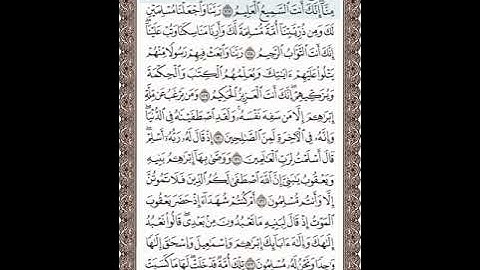 مِنَّآ إِنَّكَ أَنتَ ٱلسَّمِيعُ ٱلْعَلِيمُ ١٢٧ رَبَّنَا وَٱجْعَلْنَا مُسْلِمَيْنِ
لَكَ وَمِن ذُرِّيَّتِنَآ أُمَّةً مُّسْلِمَةً لَّكَ وَأَرِنَا مَنَاسِكَنَا وَتُبْ عَلَيْنَآ
إِنَّكَ أَنتَ ٱلتَّوَّابُ ٱلرَّحِيمُ ١٢٨ رَبَّنَا وَٱبْعَثْ فِيهِمْ رَسُولًا مِّنْهُمْ
يَتْلُوا۟ عَلَيْهِمْ ءَايَٰتِكَ وَيُعَلِّمُهُمُ ٱلْكِتَٰبَ وَٱلْحِكْمَةَ
وَيُزَكِّيهِمْ إِنَّكَ أَنتَ ٱلْعَزِيزُ ٱلْحَكِيمُ ١٢٩ وَمَن يَرْغَبُ عَن مِّلَّةِ
إِبْرَٰهِۦمَ إِلَّا مَن سَفِهَ نَفْسَهُۥ وَلَقَدِ ٱصْطَفَيْنَٰهُ فِى ٱلدُّنْيَا
وَإِنَّهُۥ فِى ٱلْءَاخِرَةِ لَمِنَ ٱلصَّٰلِحِينَ ١٣٠ إِذْ قَالَ لَهُۥ رَبُّهُۥٓ أَسْلِمْ
قَالَ أَسْلَمْتُ لِرَبِّ ٱلْعَٰلَمِينَ ١٣١ وَوَصَّىٰ بِهَآ إِبْرَٰهِۦمُ بَنِيهِ
وَيَعْقُوبُ يَٰبَنِىَّ إِنَّ ٱللَّهَ ٱصْطَفَىٰ لَكُمُ ٱلدِّينَ فَلَا تَمُوتُنَّ
إِلَّا وَأَنتُم مُّسْلِمُونَ ١٣٢ أَمْ كُنتُمْ شُهَدَآءَ إِذْ حَضَرَ يَعْقُوبَ
ٱلْمَوْتُ إِذْ قَالَ لِبَنِيهِ مَا تَعْبُدُونَ مِنۢ بَعْدِى قَالُوا۟ نَعْبُدُ
إِلَٰهَكَ وَإِلَٰهَ ءَابَآئِكَ إِبْرَٰهِۦمَ وَإِسْمَٰعِيلَ وَإِسْحَٰقَ إِلَٰهًا
وَٰحِدًا وَنَحْنُ لَهُۥ مُسْلِمُونَ ١٣٣ تِلْكَ أُمَّةٌ قَدْ خَلَتْ لَهَا مَا كَسَبَتْ